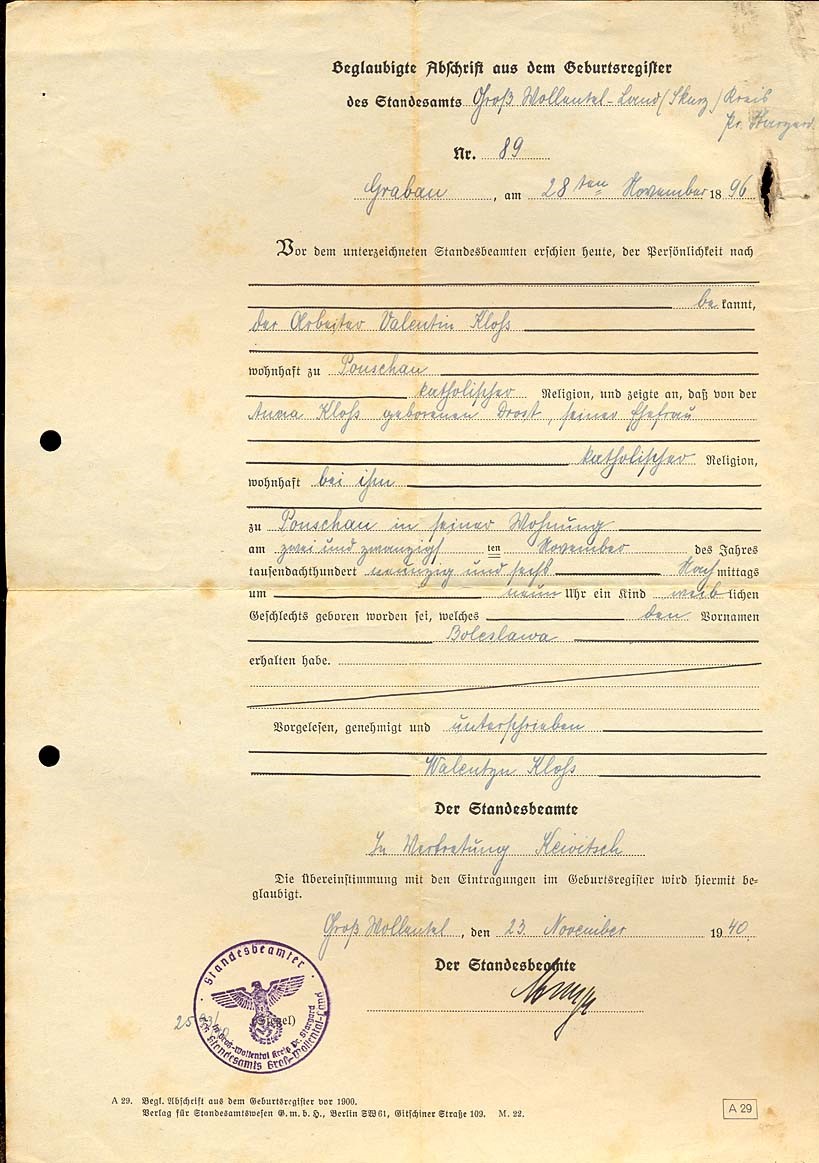 Beglaubigte Abschrift aus dem Geburtsregister
des Standesamts Groß Wollental-Land (Skurz) Kreis
Pr. Stargard.
Nr. 89
Grabau, am 28ten November 1896
Vor dem unterzeichneten Standesbeamten erschien heute, der Persönlichkeit nach
bekannt,
der Arbeiter Valentin Kloß
wohnhaft zu Ponschau
katholischer Religion, und zeigte an, daß von der
Anna Kloß geborenen Drost, seiner Ehefrau
katholischer Religion,
wohnhaft bei ihm
zu Ponschau in seiner Wohnung
am zwei und zwanzigsten November des Jahres
tausendachthundert neunzig und sechs Nachmittags
um neun Uhr ein Kind weiblichen
Geschlechts geboren worden sei, welches den Vornamen
Boleslawa
erhalten habe.
Vorgelesen, genehmigt und unterschrieben
Walentyn Kloß
Der Standesbeamte
In Vertretung
Die Übereinstimmung mit den Eintragungen im Geburtsregister wird hiermit be=
glaubigt.
Groß Wollental, den 23. November 1940
Der Standesbeamte
Standesbeamter
(Siegel)
in Groß-Wollental Kreis Pr. Stargard
des Standesamts Groß-Wollental-Land
A 29. Begl. Abschrift aus dem Geburtsregister vor 1900.
Verlag für Standesamtswesen G. m. b. H., Berlin SW 61, Gitschiner Straße 109. M. 22.
A 29